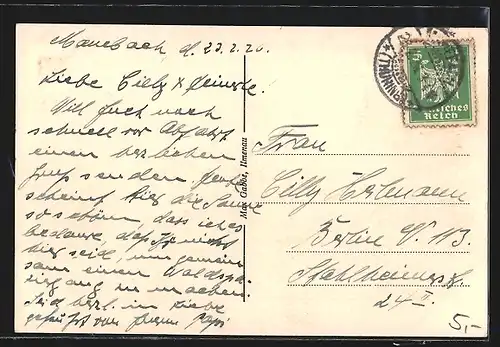 Manebach d. 23.2.26.
Liebe Cilly
Will Euch noch
schnell vor Abfahrt
einen herzlichen
Gruß senden. Heute
scheint hier die Sonne
so schön, dass ich es
bedaure, daß Ihr nicht
hier seid, um gemein-
sam einen Waldspa-
ziergang zu machen.
Seid herzl. in Liebe
gegrüßt von Eurem Papi
Max Gabbe, Ilmenau
5
Deutsches
Reich
Frau
Cilly
Berlin N. 113.
24 II.
5,-